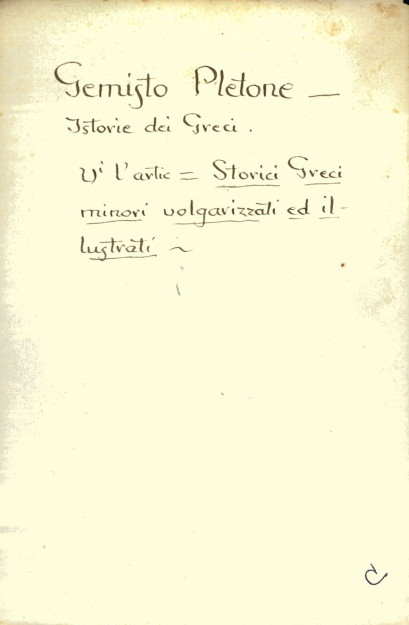 Gemisto Pletone —
Istorie dei Greci.
Vi l'artic = Storici Greci
minori volgarizzati ed il-
lustrati ~